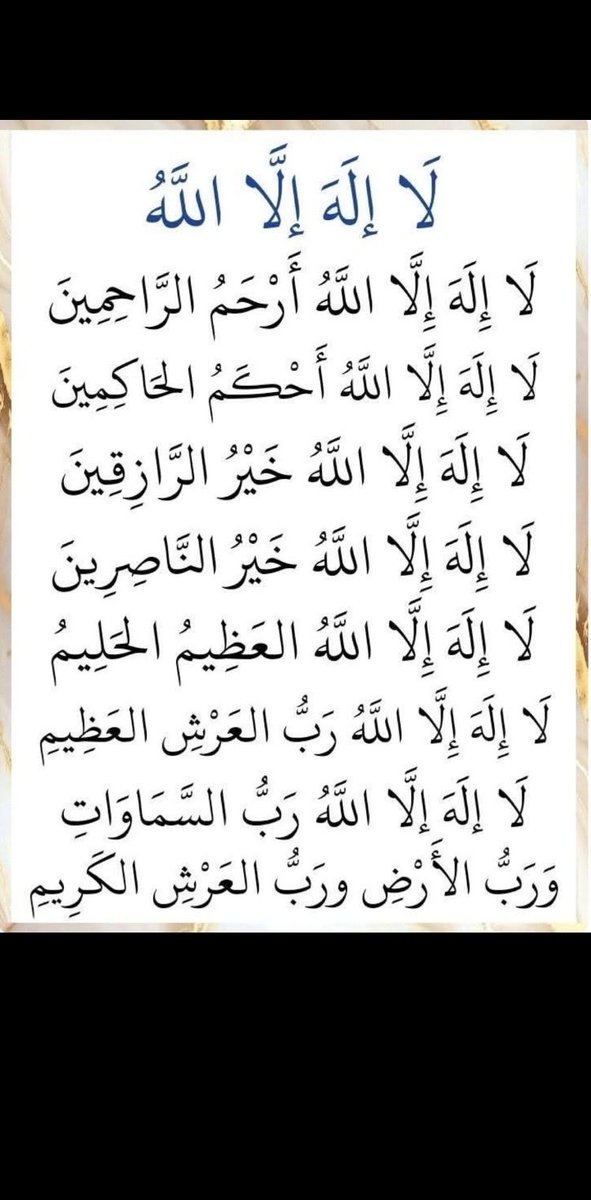 لَا إِلَهَ إِلَّا اللَّهُ
لَا إِلَهَ إِلَّا اللَّهُ أَرْحَمُ الرَّاحِمِينَ
لَا إِلَهَ إِلَّا اللَّهُ أَحْكَمُ الحَاكِمِينَ
لَا إِلَهَ إِلَّا اللَّهُ خَيْرُ الرَّازِقِينَ
لَا إِلَهَ إِلَّا اللَّهُ خَيْرُ النَّاصِرِينَ
لَا إِلَهَ إِلَّا اللَّهُ العَظِيمُ الحَلِيمُ
لَا إِلَهَ إِلَّا اللَّهُ رَبُّ العَرْشِ العَظِيمِ
لَا إِلَهَ إِلَّا اللَّهُ رَبُّ السَّمَاوَاتِ
وَرَبُّ الأَرْضِ ورَبُّ العَرْشِ الكَرِيمِ